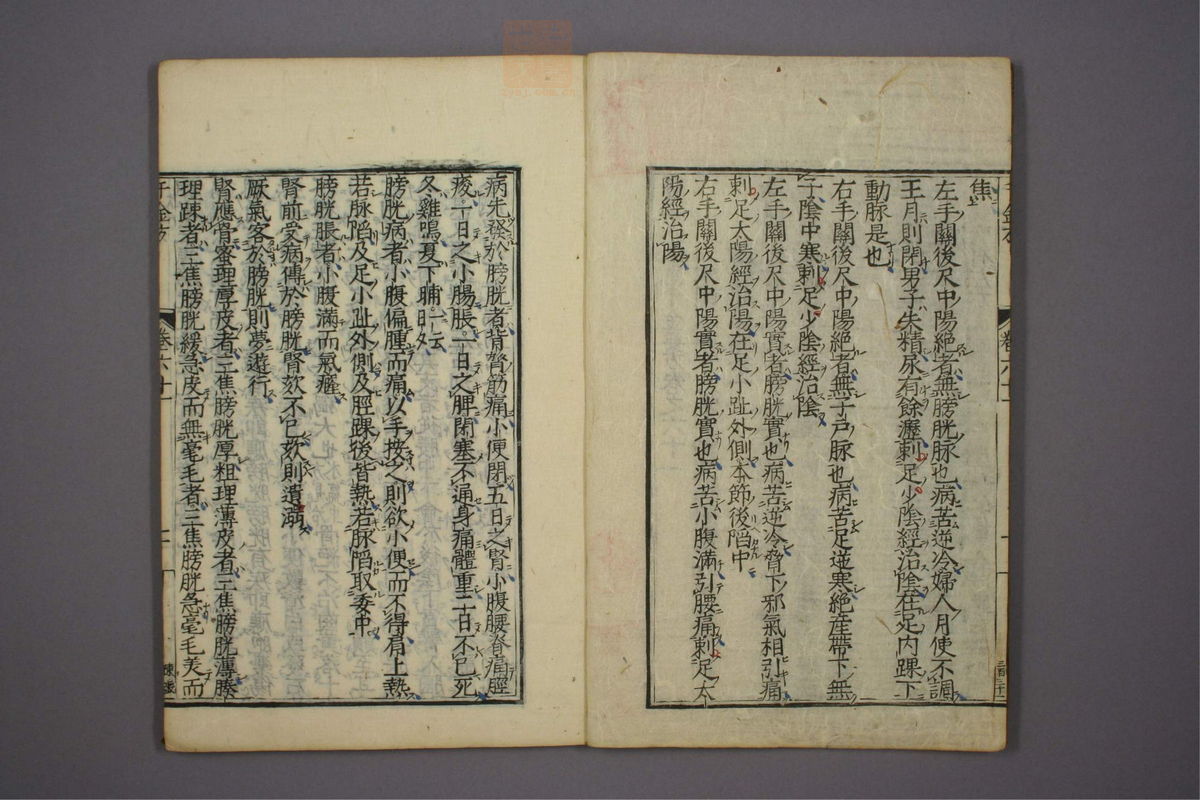 焦
左手關後尺中陽絶者無膀胱脉也病苦逆冷婦人月使不調
王月則閉男子失精尿有餘瀝刺足少陰經治陰在足内踝下
動脉是也
右手關後尺中陽絶者無子戸脉也病苦足逆寒絶産帶下無
子陰中寒刺足少陰經治陰
左手關後尺中陽實者膀胱實也病苦逆冷脅下邪氣相引痛
刺足太陽經治陽在足小趾外側本節後陷中
右手關後尺中陽實者膀胱實也病苦小腹滿引腰痛刺足太
陽經治陽
病先發於膀胱者背膂筋痛小便閉五日之腎小腹腰脊痛脛
痠一日之小腸脹一日之脾閉塞不通身痛體重二日不已死
冬雞鳴夏下晡一云日夕
膀胱病者小腹偏腫而痛以手按之則欲小便而不得肩上熱
若脉陷及足小趾外側及脛踝後皆熱若脉陷取委中
膀胱脹者小腹滿而氣癃
腎前受病傳於膀胱腎欬不已欬則遺溺
厥氣客於膀胱則夢遊行
腎應骨密理厚皮者三焦膀胱厚粗理薄皮者三焦膀胱薄腠
理踈者三焦膀胱緩急皮而無毫毛者三焦膀胱急毫毛美而
千金方
卷六廿